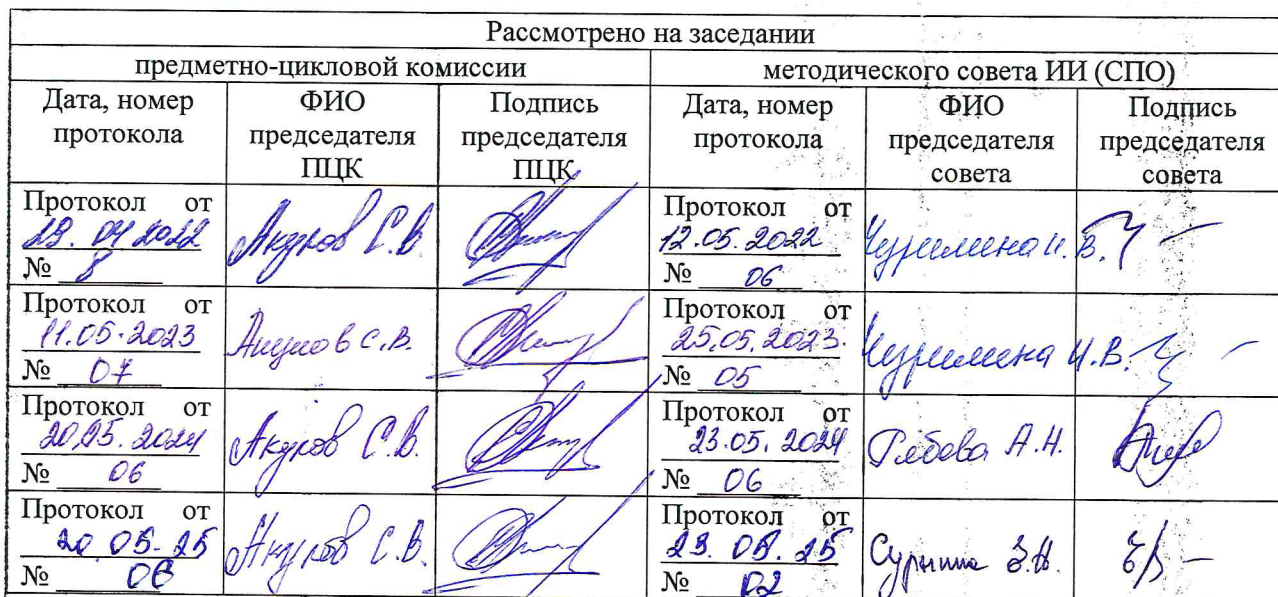 Рассмотрено на заседании
предметно-цикловой комиссии
методического совета ИИ (СПО)
Дата, номер протокола
ФИО председателя ПЦК
Подпись председателя ПЦК
Дата, номер протокола
ФИО председателя совета
Подпись председателя совета
Протокол от
04 2022
№ 8
С.В
Протокол от
12.05.2022
№ 06
И.В.
Протокол от
11.05.2023
№ 07
С.В.
Протокол от
25.05.2023.
№ 05
И.В.
Протокол от
20.05.2024
№ 06
Акуров С.В.
Протокол от
23.05.2024
№ 06
Рябова А.Н.
Протокол от
20 05-25
№ 06
С.В.
Протокол от
№ 02